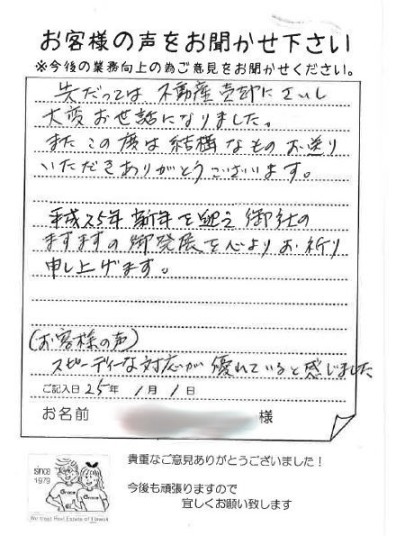 お客様の声をお聞かせ下さい
※今後の業務向上の為ご意見をお聞かせください。
先だっては、不動産売却にさいし
大変お世話になりました。
またこの度は結構なものお送り
いただきありがとうございます。
平成25年新年を迎え御社の
ますますの御発展を心よりお祈り
申し上げます。
(お客様の声)
スピーディーな対応が優れていると感じました
ご記入日 25年 1月 1日
お名前 様
since
1979
貴重なご意見ありがとうございました！
今後も頑張りますので
宜しくお願い致します
Grace
Heritage Real Estate of